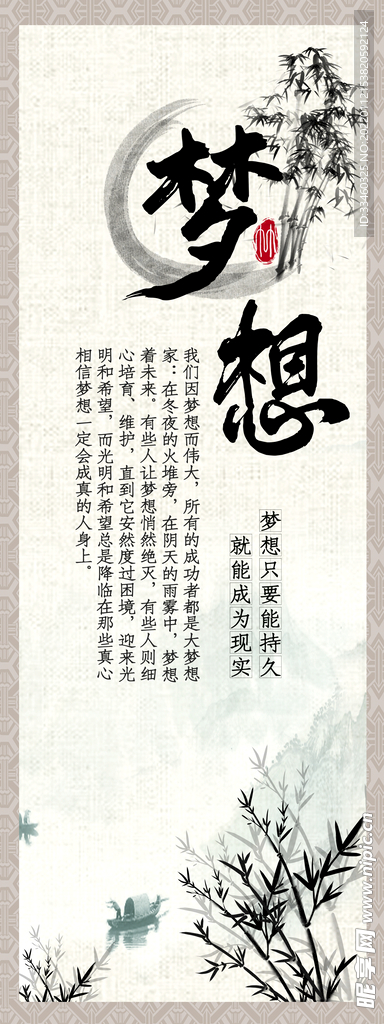 梦想
竹
梦想只要能持久
就能成为现实
我们因梦想而伟大，所有的成功者都是大梦想
家：在冬夜的火堆旁，在阴天的雨雾中，梦想
着未来。有些人让梦想悄然绝灭，有些人则细
心培育、维护，直到它安然度过困境，迎来光
明和希望，而光明和希望总是降临在那些真心
相信梦想一定会成真的人身上。
昵享网 www.nipic.cn